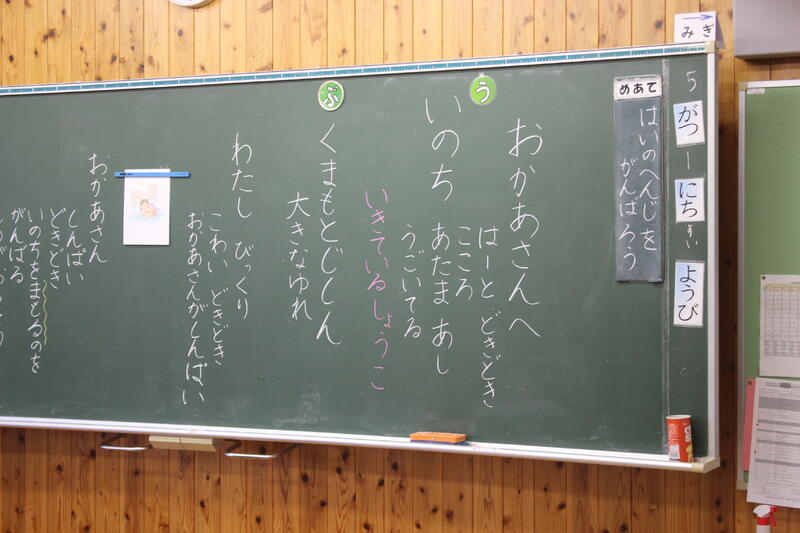 みぎ
5がつ1にちすいようび
めあて
はいのへんじを
がんばろう
う
おかあさんへ
はーと どきどき
こころ
いのち あたま あし
うごいてる
いきているしょうこ
ぶ
くまもとじしん
大きなゆれ
わたし びっくり
こわい どきどき
おかあさんがしんぱい
おかあさん
しんぱい
どきどき
いのちをまもるのを
がんばる